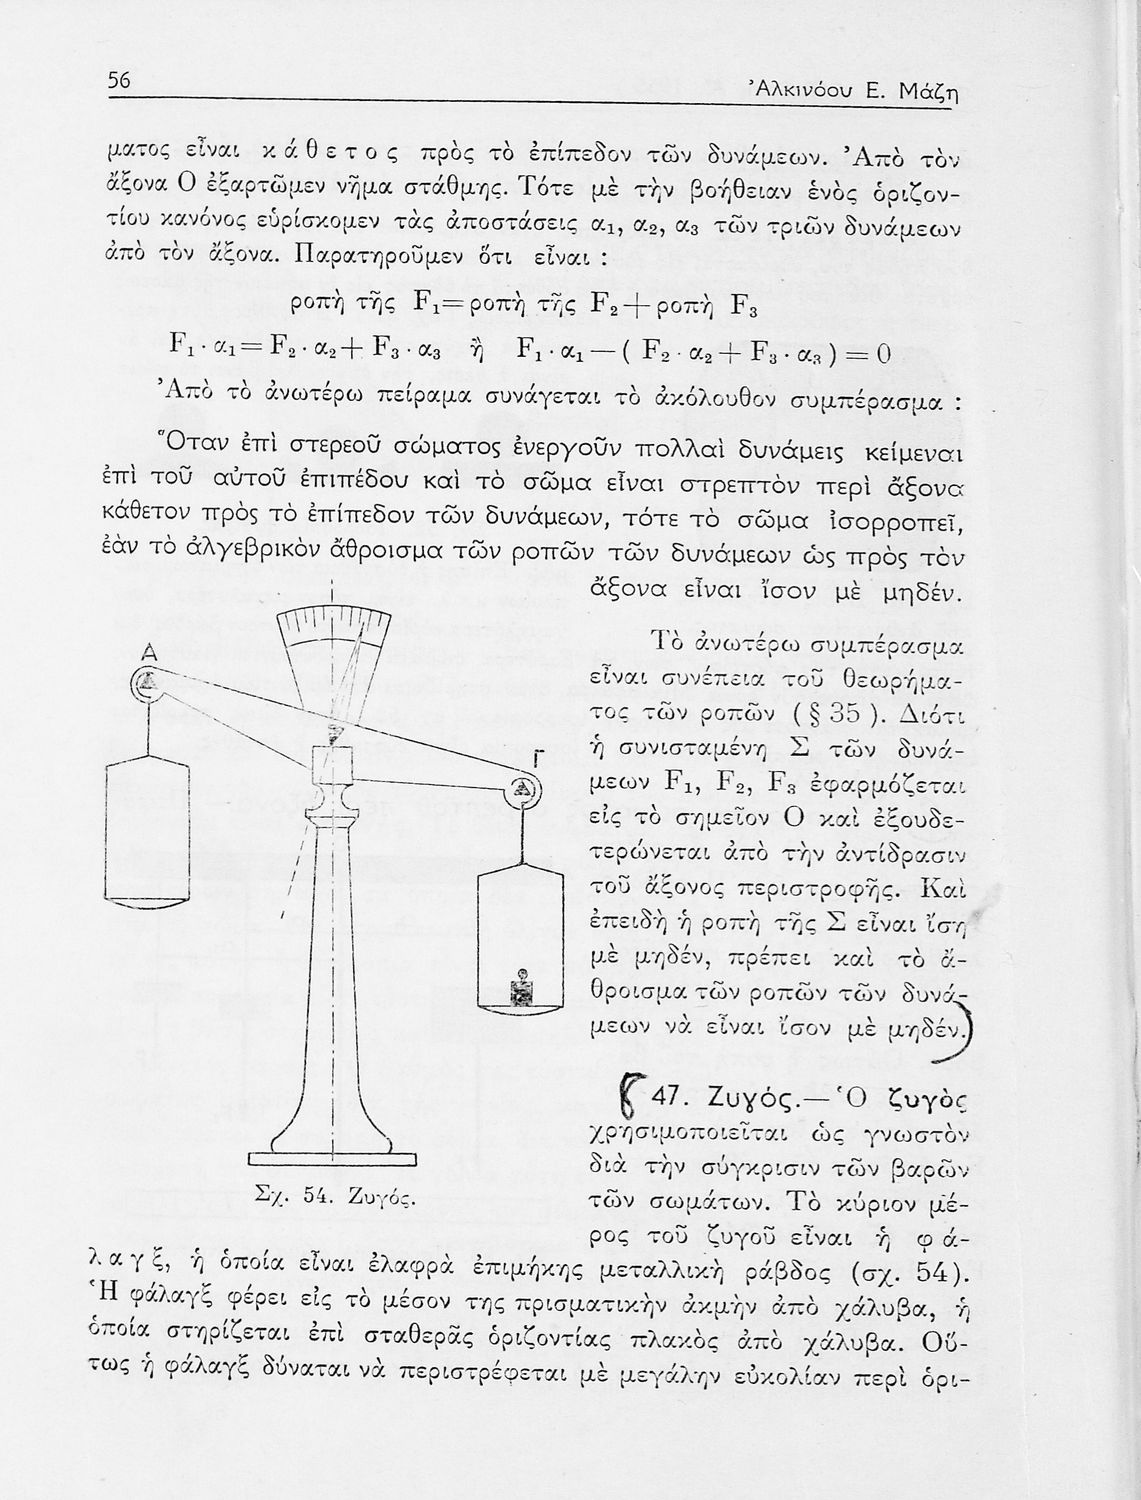 56
Ἀλκινόου Ε. Μάζη
ματος εἶναι κάθετος πρὸς τὸ ἐπίπεδον τῶν δυνάμεων. Ἀπὸ τὸν
ἄξονα Ο ἐξαρτῶμεν νῆμα στάθμης. Τότε μὲ τὴν βοήθειαν ἑνὸς ὁριζον-
τίου κανόνος εὑρίσκομεν τὰς ἀποστάσεις α₁, α₂, α₃ τῶν τριῶν δυνάμεων
ἀπὸ τὸν ἄξονα. Παρατηροῦμεν ὅτι εἶναι :
ροπὴ τῆς F₁=ροπὴ τῆς F₂+ροπὴ F₃
F₁·α₁=F₂·α₂+F₃·α₃ ἢ F₁·α₁—( F₂·α₂+F₃·α₃ )=0
Ἀπὸ τὸ ἀνωτέρω πείραμα συνάγεται τὸ ἀκόλουθον συμπέρασμα :
Ὅταν ἐπὶ στερεοῦ σώματος ἐνεργοῦν πολλαὶ δυνάμεις κείμεναι
ἐπὶ τοῦ αὐτοῦ ἐπιπέδου καὶ τὸ σῶμα εἶναι στρεπτὸν περὶ ἄξονα
κάθετον πρὸς τὸ ἐπίπεδον τῶν δυνάμεων, τότε τὸ σῶμα ἰσορροπεῖ,
ἐὰν τὸ ἀλγεβρικὸν ἄθροισμα τῶν ροπῶν τῶν δυνάμεων ὡς πρὸς τὸν
ἄξονα εἶναι ἴσον μὲ μηδέν.
Τὸ ἀνωτέρω συμπέρασμα
εἶναι συνέπεια τοῦ θεωρήμα-
τος τῶν ροπῶν ( § 35 ). Διότι
ἡ συνισταμένη Σ τῶν δυνά-
μεων F₁, F₂, F₃ ἐφαρμόζεται
εἰς τὸ σημεῖον Ο καὶ ἐξουδε-
τερώνεται ἀπὸ τὴν ἀντίδρασιν
τοῦ ἄξονος περιστροφῆς. Καὶ
ἐπειδὴ ἡ ροπὴ τῆς Σ εἶναι ἴση
μὲ μηδέν, πρέπει καὶ τὸ ἄ-
θροισμα τῶν ροπῶν τῶν δυνά-
μεων νὰ εἶναι ἴσον μὲ μηδέν.
Α
Γ
Σχ. 54. Ζυγός.
47. Ζυγός.—Ὁ ζυγὸς
χρησιμοποιεῖται ὡς γνωστὸν
διὰ τὴν σύγκρισιν τῶν βαρῶν
τῶν σωμάτων. Τὸ κύριον μέ-
ρος τοῦ ζυγοῦ εἶναι ἡ φά-
λαγξ, ἡ ὁποία εἶναι ἐλαφρὰ ἐπιμήκης μεταλλικὴ ράβδος (σχ. 54).
Ἡ φάλαγξ φέρει εἰς τὸ μέσον της πρισματικὴν ἀκμὴν ἀπὸ χάλυβα, ἡ
ὁποία στηρίζεται ἐπὶ σταθερᾶς ὁριζοντίας πλακὸς ἀπὸ χάλυβα. Οὕ-
τως ἡ φάλαγξ δύναται νὰ περιστρέφεται μὲ μεγάλην εὐκολίαν περὶ ὁρι-